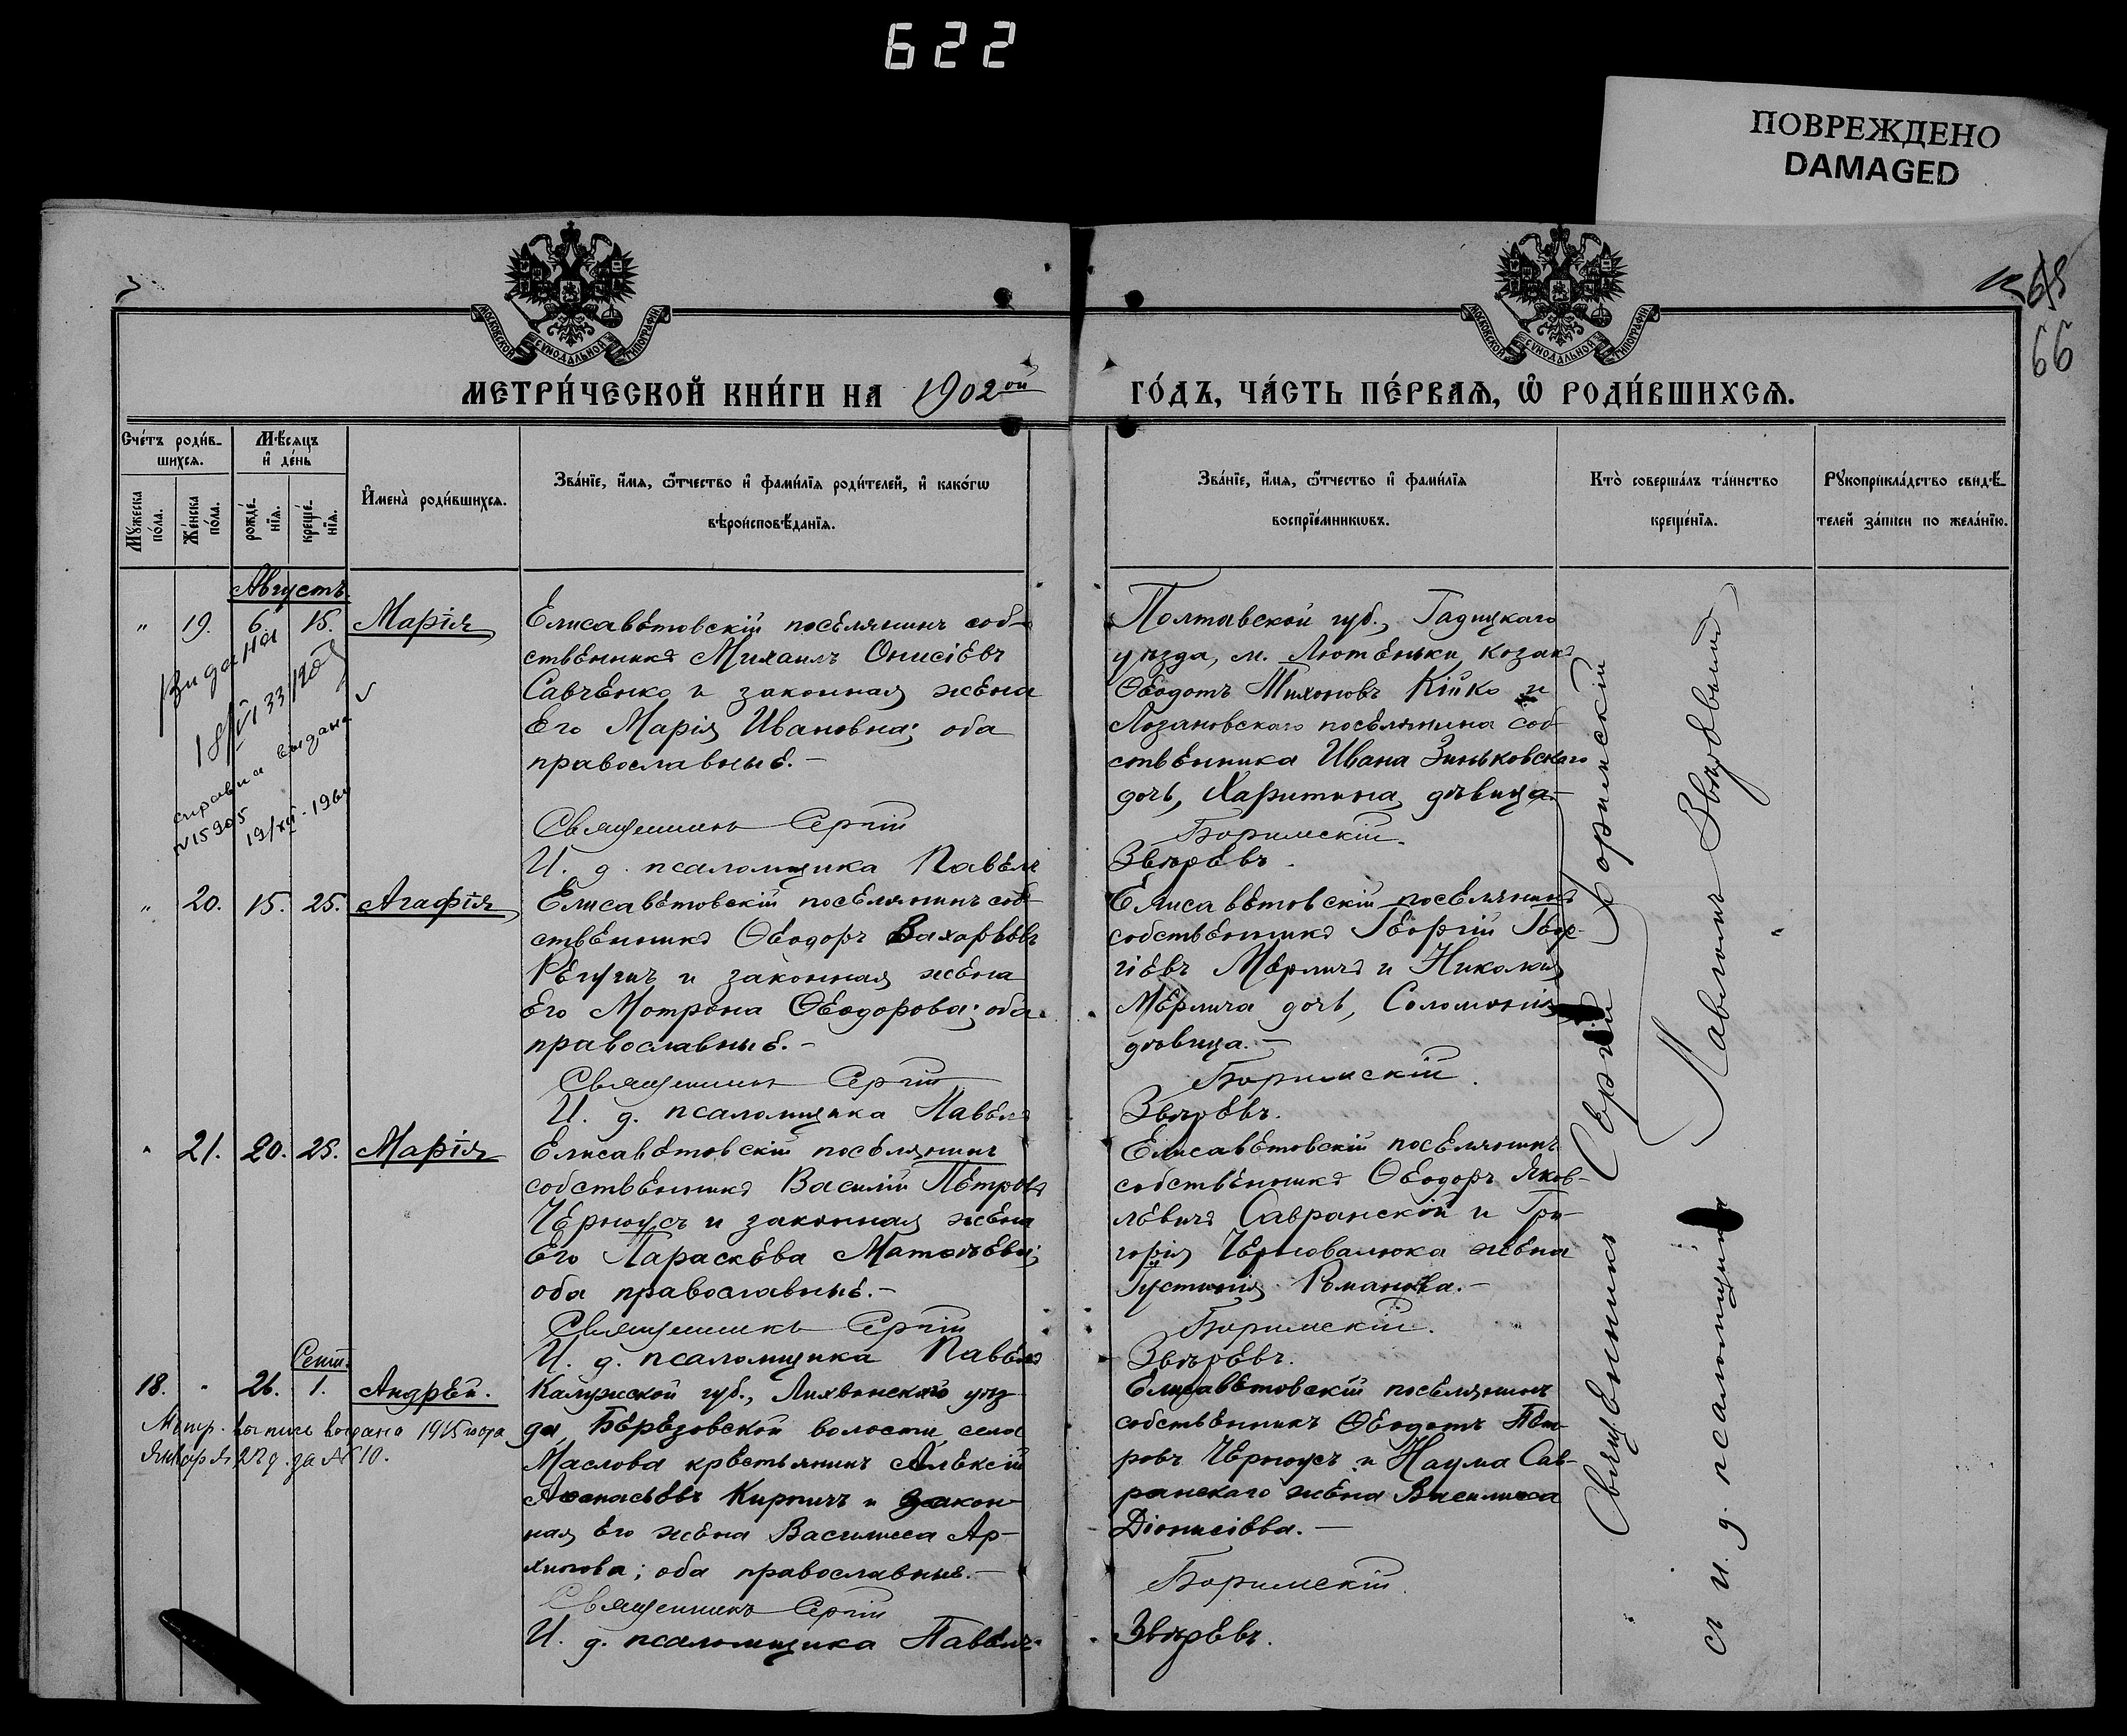 622
ПОВРЕЖДЕНО
DAMAGED
66
МОСКОВСКОЙ СѴНОДАЛЬНОЙ ТИПОГРАФІИ
МОСКОВСКОЙ СѴНОДАЛЬНОЙ ТИПОГРАФІИ
МЕТРИ́ЧЕСКОЙ КНИ́ГИ НА 1902ой ГО́ДЪ, ЧА́СТЬ ПЕ́РВАѦ, Ѡ҆ РОДИ́ВШИХСѦ.
Сче́тъ роди́в-
шихсѧ.
Мꙋ́жеска
по́ла.
Же́нска
по́ла.
Мѣ́сѧцъ
и҆ де́нь
рожде́-
нїѧ.
креще́-
нїѧ.
И҆мена̀ роди́вшихсѧ.
Зва́нїе, и҆́мѧ, ѻ҆́тчество и҆ фами́лїѧ роди́телей, и҆ како́гѡ
вѣроисповѣ́данїѧ.
Зва́нїе, и҆́мѧ, ѻ҆́тчество и҆ фами́лїѧ
воспрїе́мникѡвъ.
Кто̀ соверша́лъ та́инство
креще́нїѧ.
Рꙋкоприкла́дство свидѣ́-
телей за́писи по жела́нїю.
Августъ
" 19. 6. 15. Марія
Елисаветовскій поселянинъ соб-
ственникъ Михаилъ Онисіевъ
Савченко и законная жена
его Марія Ивановна; оба
православные.-
Священникъ Сергій
И. д. псаломщика Павелъ
Полтавской губ., Гадицкаго
уѣзда, м. Лютеньки, козакъ
Ѳеодотъ Тихоновъ Кійко и
Лозановскаго поселянина соб-
ственника Ивана Зиньковскаго
дочь, Харитина, дѣвица.-
Боримскій.
Звѣревъ.
Видана
справка выдана
№ 15905
19/XII-196
" 20. 15. 25. Агафія
Елисаветовскій поселянинъ соб-
ственникъ Ѳеодоръ Захарьевъ
и законная жена
его Мотрона Ѳеодорова; оба
православные.-
Священникъ Сергій
И. д. псаломщика Павелъ
Елисаветовскій поселянинъ
собственникъ Георгій Геор-
гіевъ Мерличъ и Николая
Мерлича дочь, Соломонія,
дѣвица.-
Боримскій.
Звѣревъ.
" 21. 20. 25. Марія
Елисаветовскій поселянинъ
собственникъ Василій Петровъ
Черноусъ и законная жена
его Параскева Матвѣева;
оба православные.-
Священникъ Сергій
И. д. псаломщика Павелъ
Елисаветовскій поселянинъ
собственникъ Ѳеодоръ Яков-
левичъ Савранскій и Гри-
горія Черновалюка жена
Іустинія Романова.-
Боримскій.
Звѣревъ.
Сент.
18. " 26. 1. Андрей.
Метр. выпись выдана 1915 года
Января 27 д. за № 10.
Калужской губ., Лихвинскаго уѣз-
да, Березовской волости, села
Маслова крестьянинъ Алексій
Аѳанасьевъ Кирпичъ и закон-
ная его жена Василисса Ар-
хипова; оба православные.-
Священникъ Сергій
И. д. псаломщика Павелъ
Елисаветовскій поселянинъ
собственникъ Ѳеодотъ Пет-
ровъ Черноусъ и Наума Сав-
ранскаго жена Василисса
Діонисіева.-
Боримскій.
Звѣревъ.
Священникъ Сергій Боримскій
съ и. д. псаломщика Павломъ Звѣревымъ